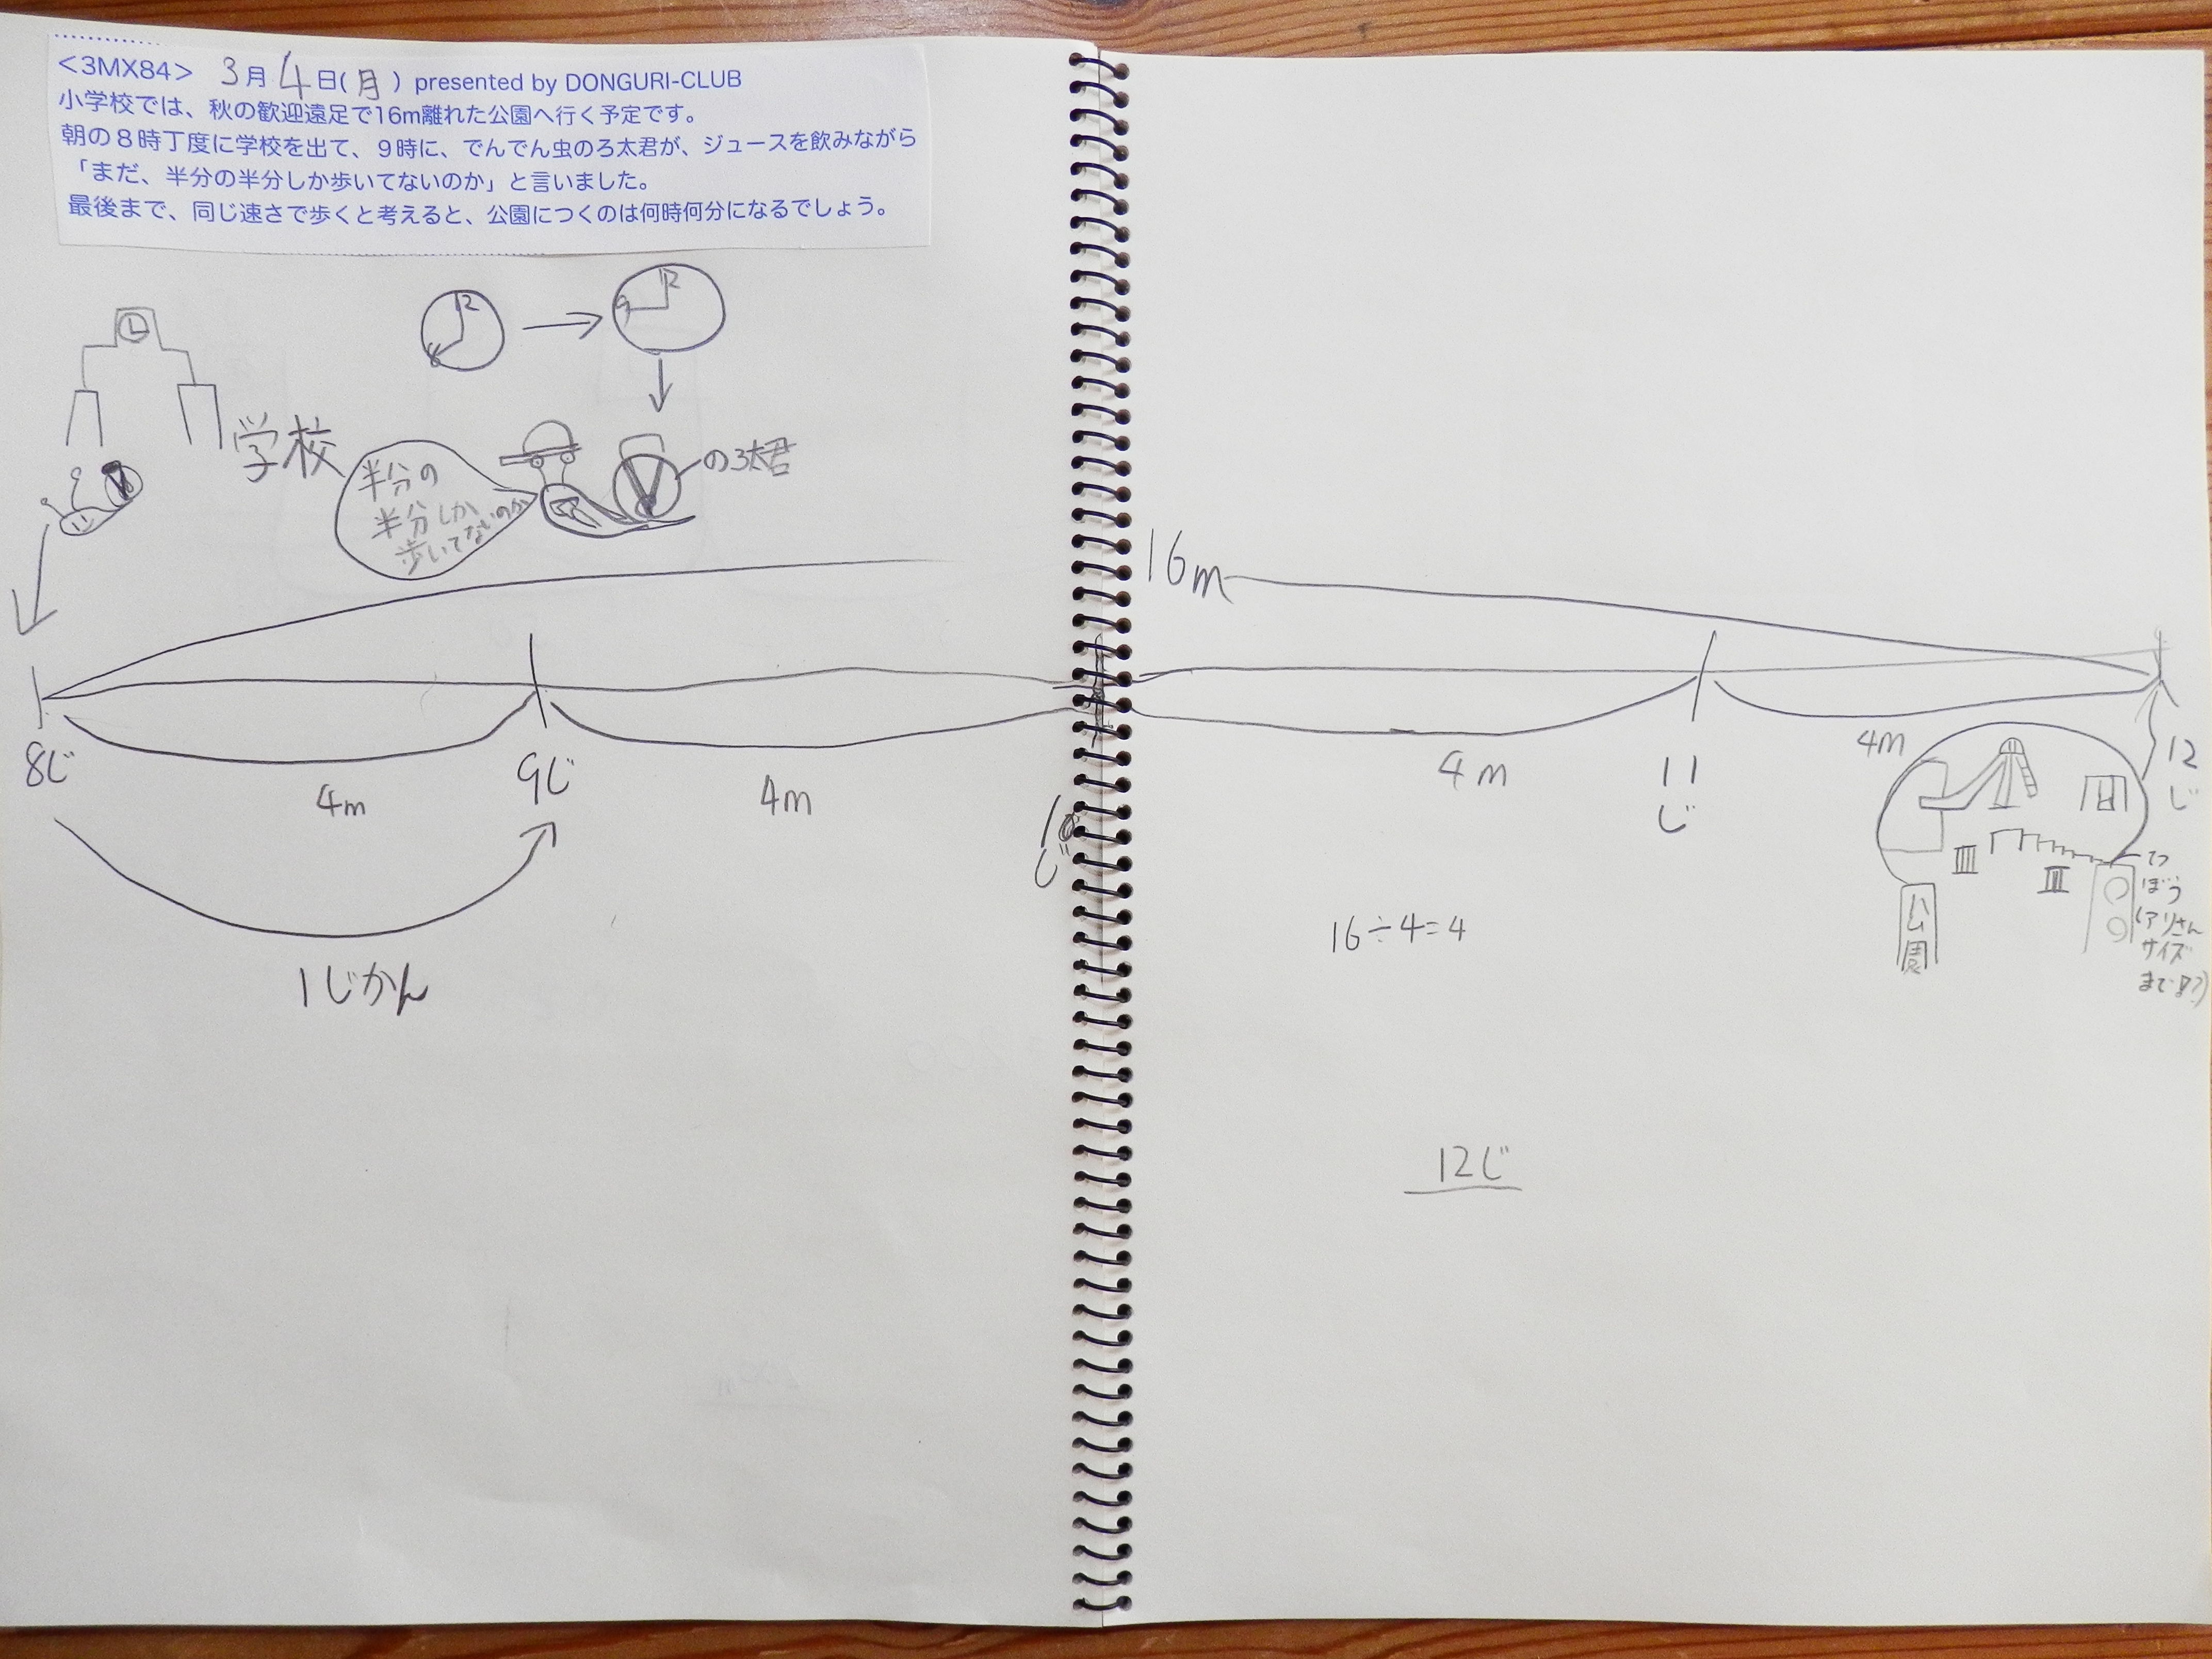 <3MX84> 3月4日(月) presented by DONGURI-CLUB
小学校では、秋の歓迎遠足で16m離れた公園へ行く予定です。
朝の8時丁度に学校を出て、9時に、でんでん虫のろ太君が、ジュースを飲みながら
「まだ、半分の半分しか歩いてないのか」と言いました。
最後まで、同じ速さで歩くと考えると、公園につくのは何時何分になるでしょう。
12
8
12
9
学校
半分の
半分しか
歩いてないのか
のろ太君
16m
8じ
4m
9じ
4m
10じ
4m
11じ
4m
12じ
1じかん
16÷4=4
公園
てつ
ぼう
(アリさん
サイズ
まで
12じ